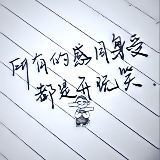 所有的感同身受
都是开玩笑